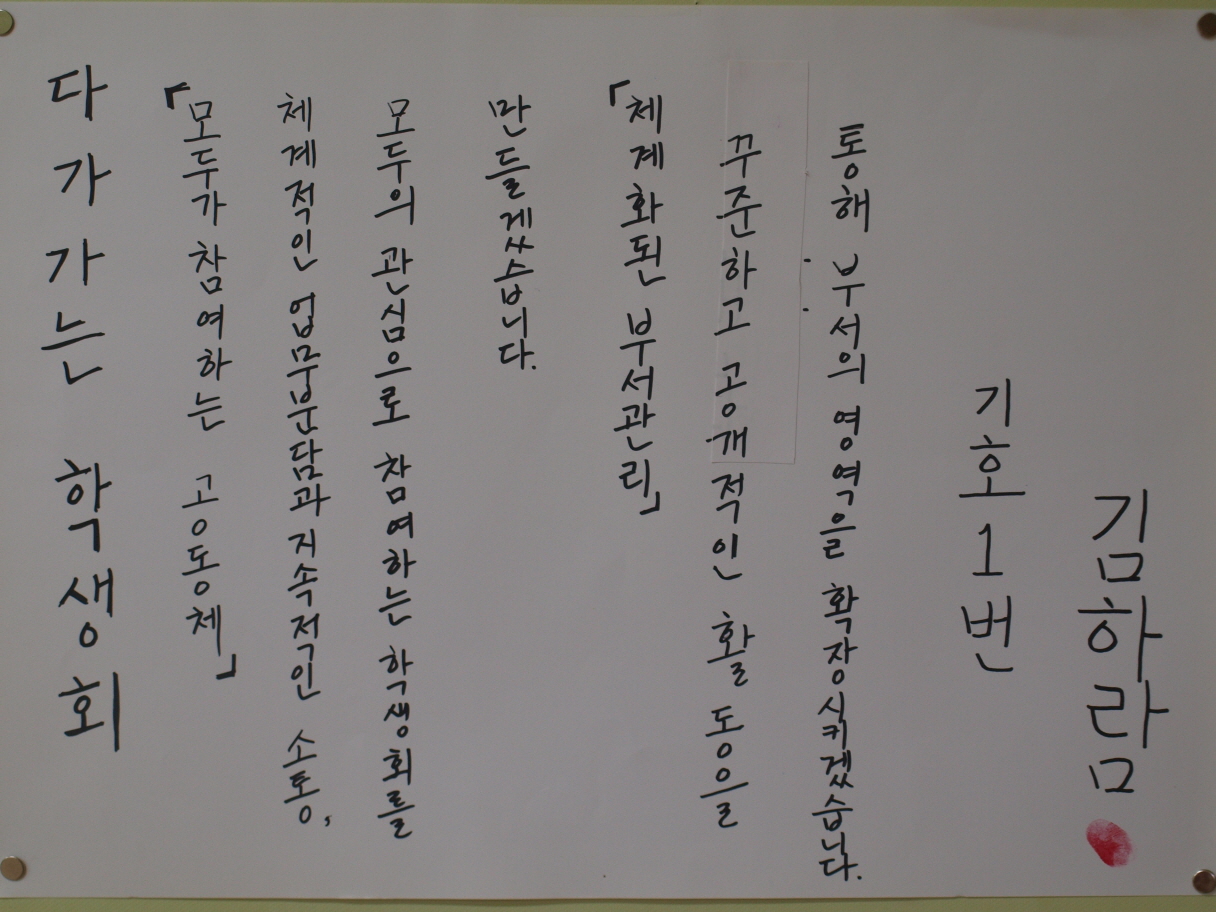 다가가는 학생회
「모두가 참여하는 공동체」
체계적인 업무분담과 지속적인 소통,
모두의 관심으로 참여하는 학생회를
만들게씁습니다.
「체계화된 부서관리」
꾸준하고 공개적인 활동을
통해 부서의 영역을 확장시키겠습니다.
기호 1번
김하람